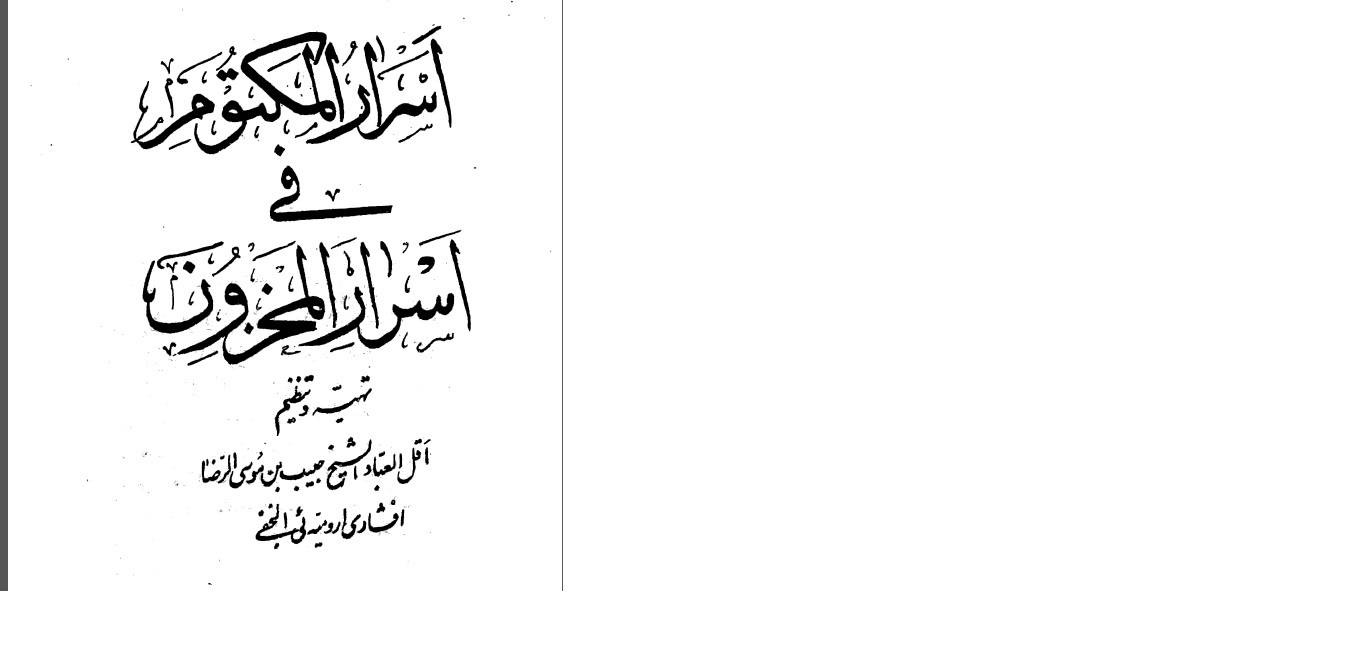 اَسْرارُ المَكتُومِ
في
اَسْرارِ المَخْزُونِ
تهیّه و تنظیم
اَقل العبّاد الشیخ حبیب بن مُوسی الرّضا
افشاری ارومیّه ئی النجفی